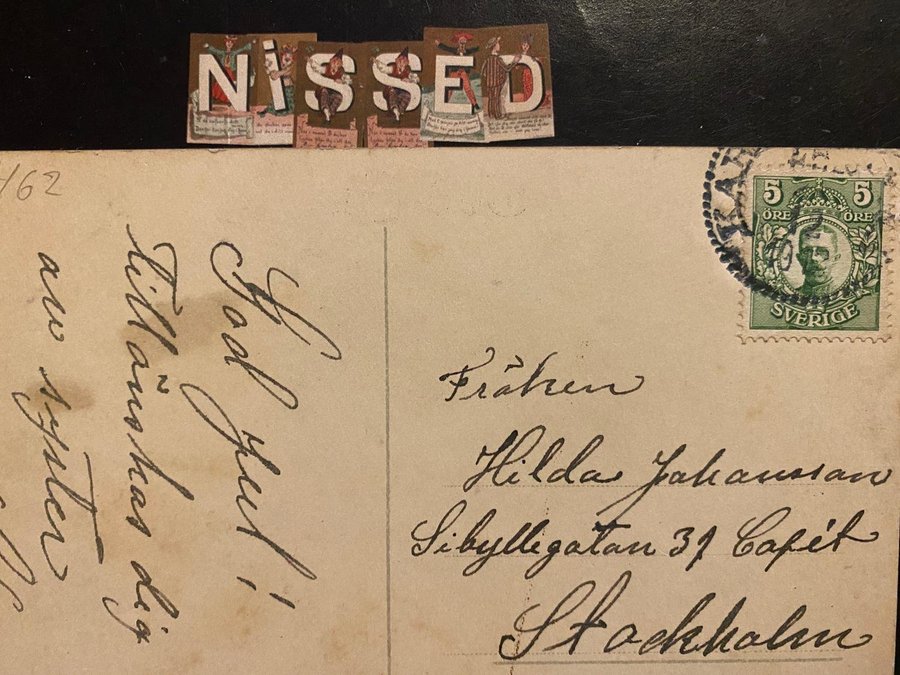 NISSED
God Jul!
tillönskas dig
av syster
5 5
ÖRE ÖRE
SVERIGE
Fröken
Hilda Johansson
Sibyllegatan Cafét
Stockholm